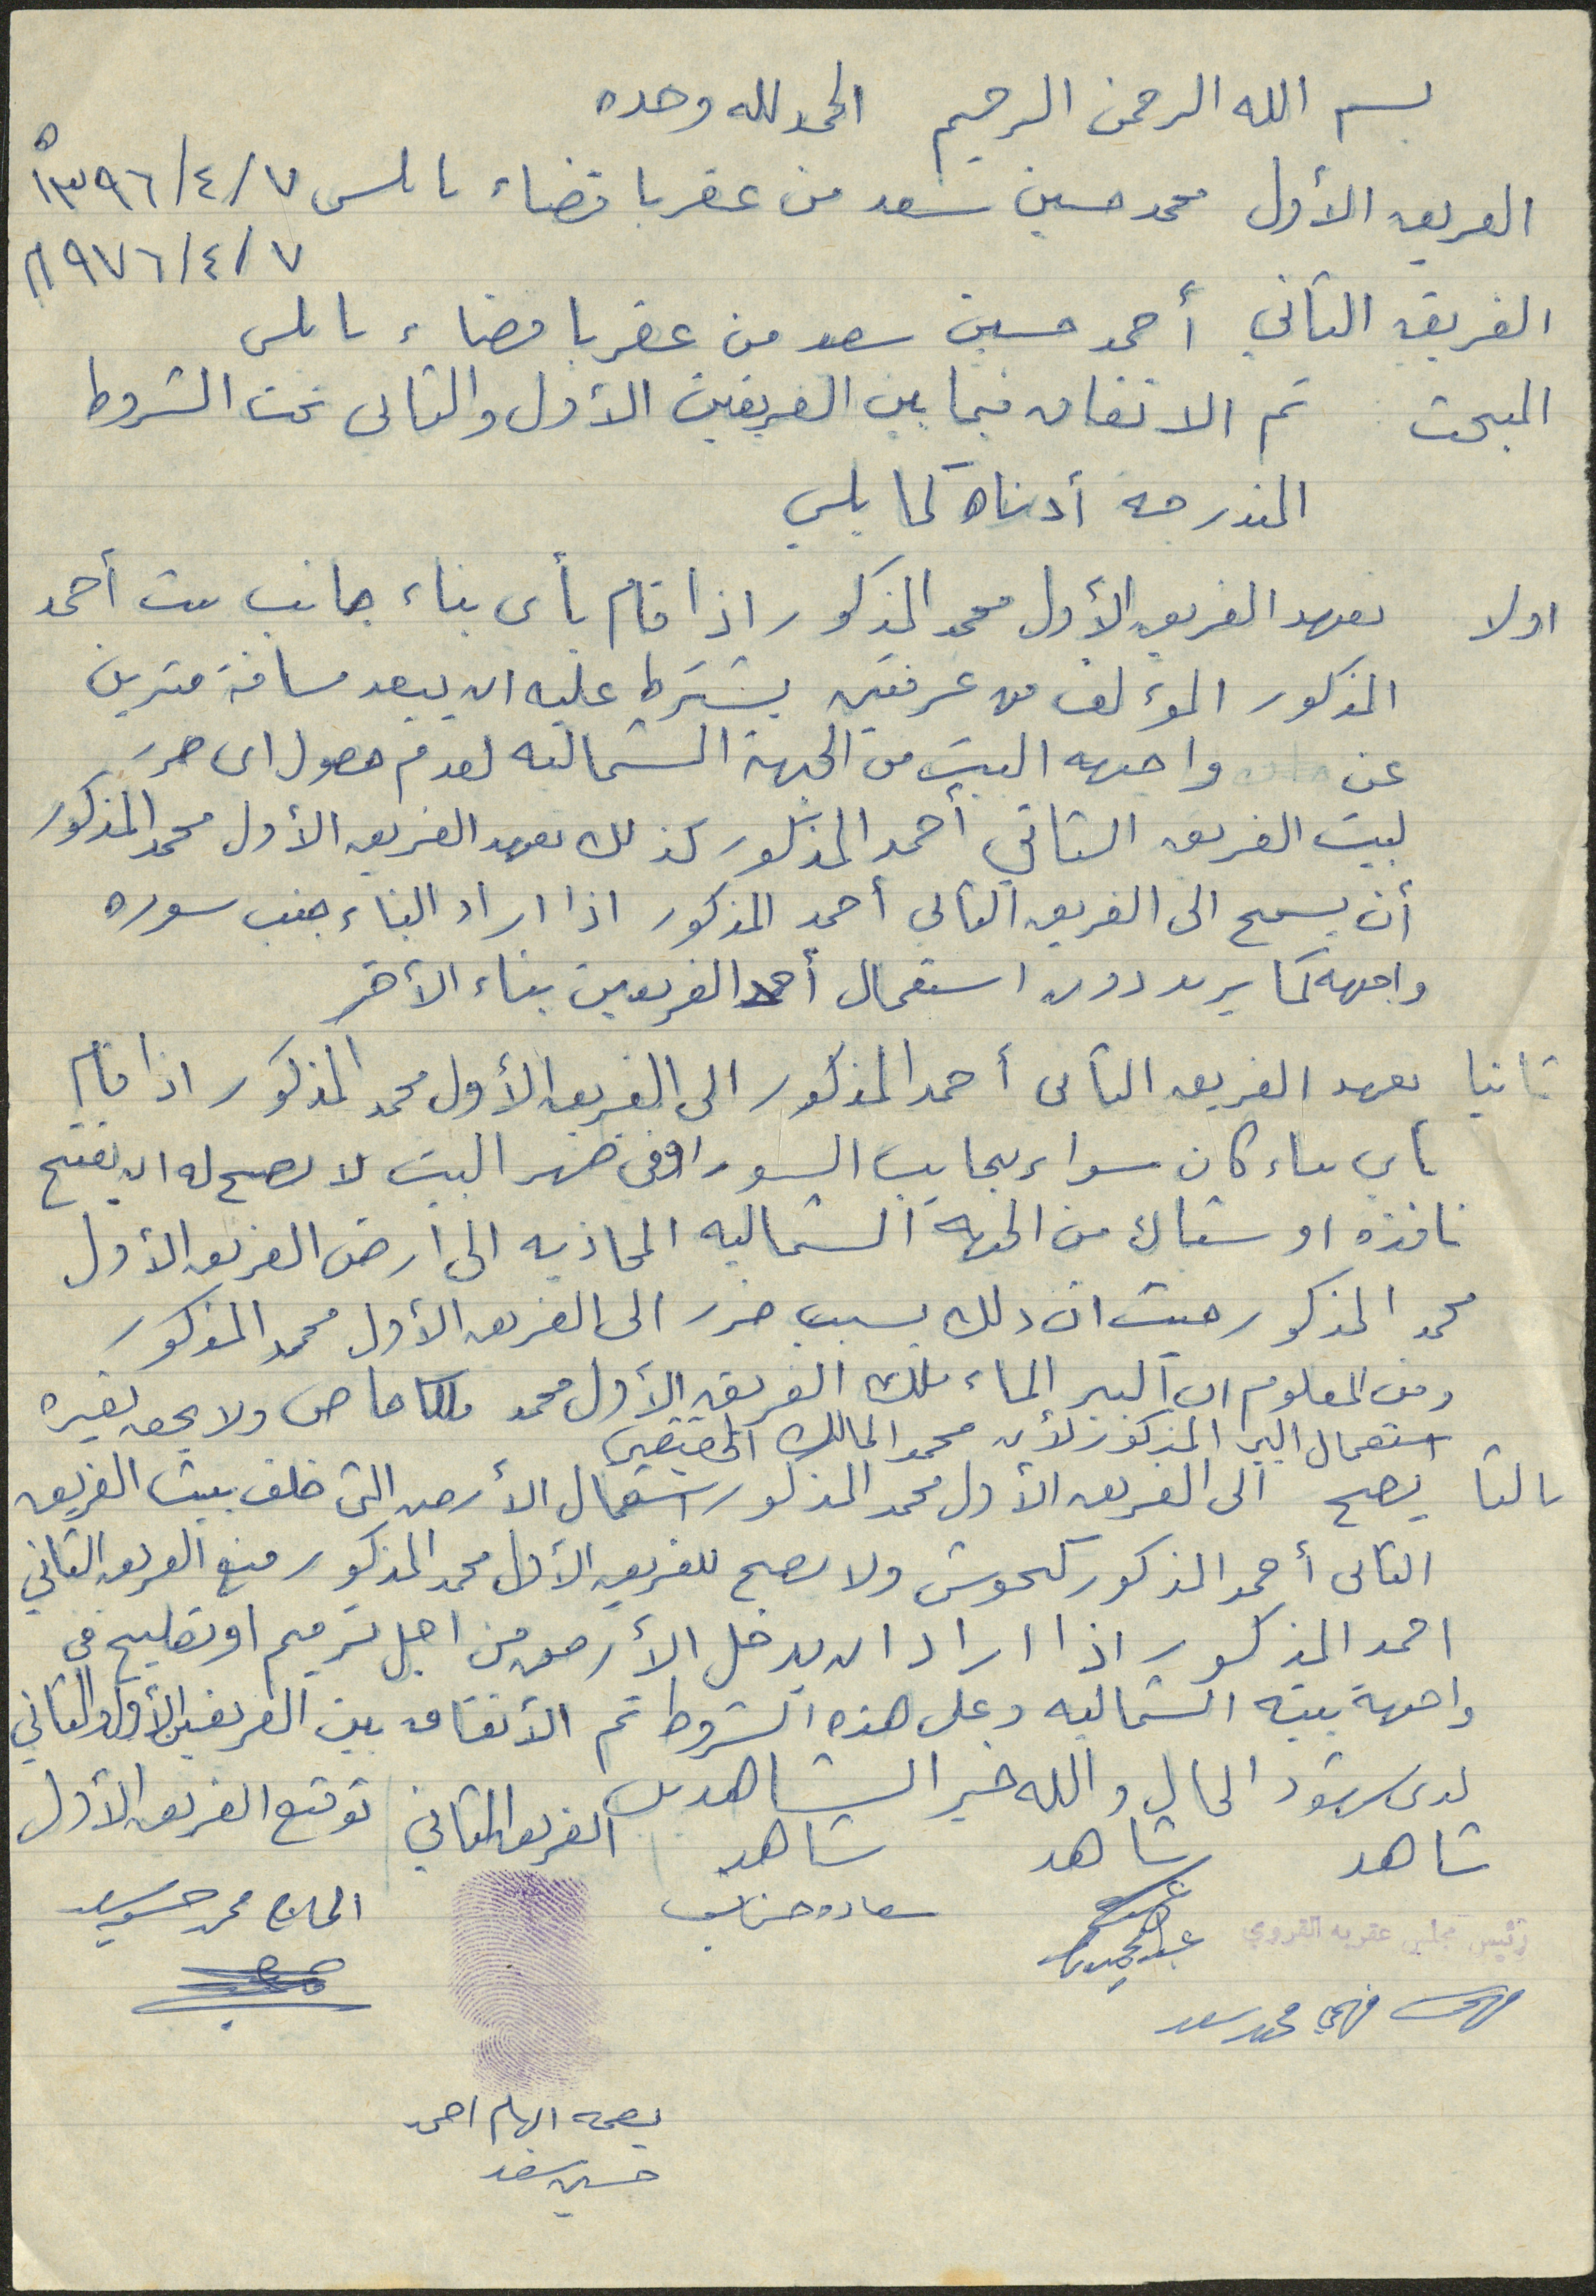 بسم الله الرحمن الرحيم الحمد لله وحده
الفريق الأول محمد حسين سعد من عقربا قضاء نابلس ٧/٤/١٣٩٦ه
٧/٤/١٩٧٦م
الفريق الثاني أحمد حسين سعد من عقربا قضاء نابلس
المبحث تم الاتفاق فيما بين الفريقين الأول والثاني تحت الشروط
المندرجة أدناه كما يلي
اولا تعهد الفريق الأول محمد المذكور اذا قام بأي بناء جانب بيت أحمد
المذكور المؤلف من غرفتين يشترط عليه ان يبعد مسافة مترين
عن واجهه البيت من الجهة الشماليه لعدم حصول اى ضرر
لبيت الفريق الثاني أحمد المذكور كذلك تعهد الفريق الأول محمد المذكور
أن يسمح الى الفريق الثاني أحمد المذكور اذا اراد البناء جنب سوره
واجهه كما يريد دون استعمال أحد الفريقين بناء الآخر
ثانيا تعهد الفريق الثاني أحمد المذكور الى الفريق الأول محمد المذكور اذا قام
بأي بناء كان سواء بجانب السور او في ظهر البيت لا يصح له ان يفتح
نافذه او شباك من الجهة الشماليه المحاذيه الى ارض الفريق الأول
محمد المذكور حيث ان ذلك يسبب ضرر الى الفريق الأول محمد المذكور
ومن المعلوم ان البير الماء ملك الفريق الأول محمد ملكا خاص ولا يحق لغيره
استعمال البير المذكور لأن محمد المالك الحقيقي
ثالثا يصح الى الفريق الأول محمد المذكور استعمال الأرض التى خلف بيت الفريق
الثاني أحمد المذكور كحوش ولا يصح للفريق الأول محمد المذكور منع الفريق الثاني
احمد المذكور اذا اراد ان يدخل الأرض من اجل ترميم او تصليح في
واجهة بيته الشماليه وعلى هذه الشروط تم الأتفاق بين الفريقين الأول والثاني
لدى شهود الحال والله خير الشاهدين
شاهد شاهد شاهد الفريق الثاني توقيع الفريق الأول
رئيس مجلس عقربه القروي سعاده حسن الحاج محمد حسين سعد
فهمي محمد سعد
بصمة ابهام احمد
حسين سعد